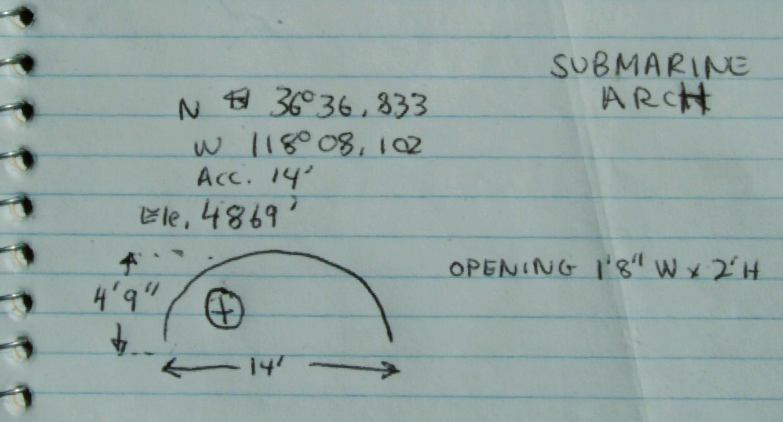 SUBMARINE
ARCH
N 36° 36.833
W 118° 08.102
Acc. 14'
Ele. 4869'
OPENING 1'8" W x 2'H
4'9"
14'